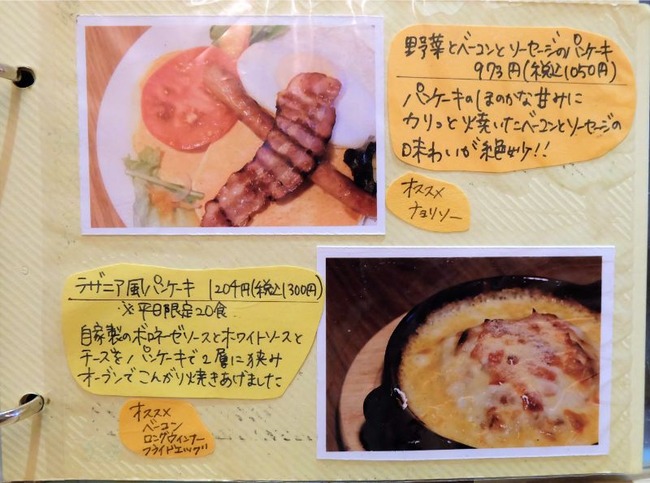 野菜とベーコンとソーセージのパンケーキ
973円(税込1050円)
パンケーキのほのかな甘みに
カリっと焼いたベーコンとソーセージの
味わいが絶妙!!
オススメ
チョリソー
ラザニア風パンケーキ 1204円(税込1300円)
※平日限定20食
自家製のボロネーゼソースとホワイトソースと
チーズをパンケーキで2層に挟み
オーブンでこんがり焼きあげました
オススメ
ベーコン
ロングウィンナー
フライドエッグ